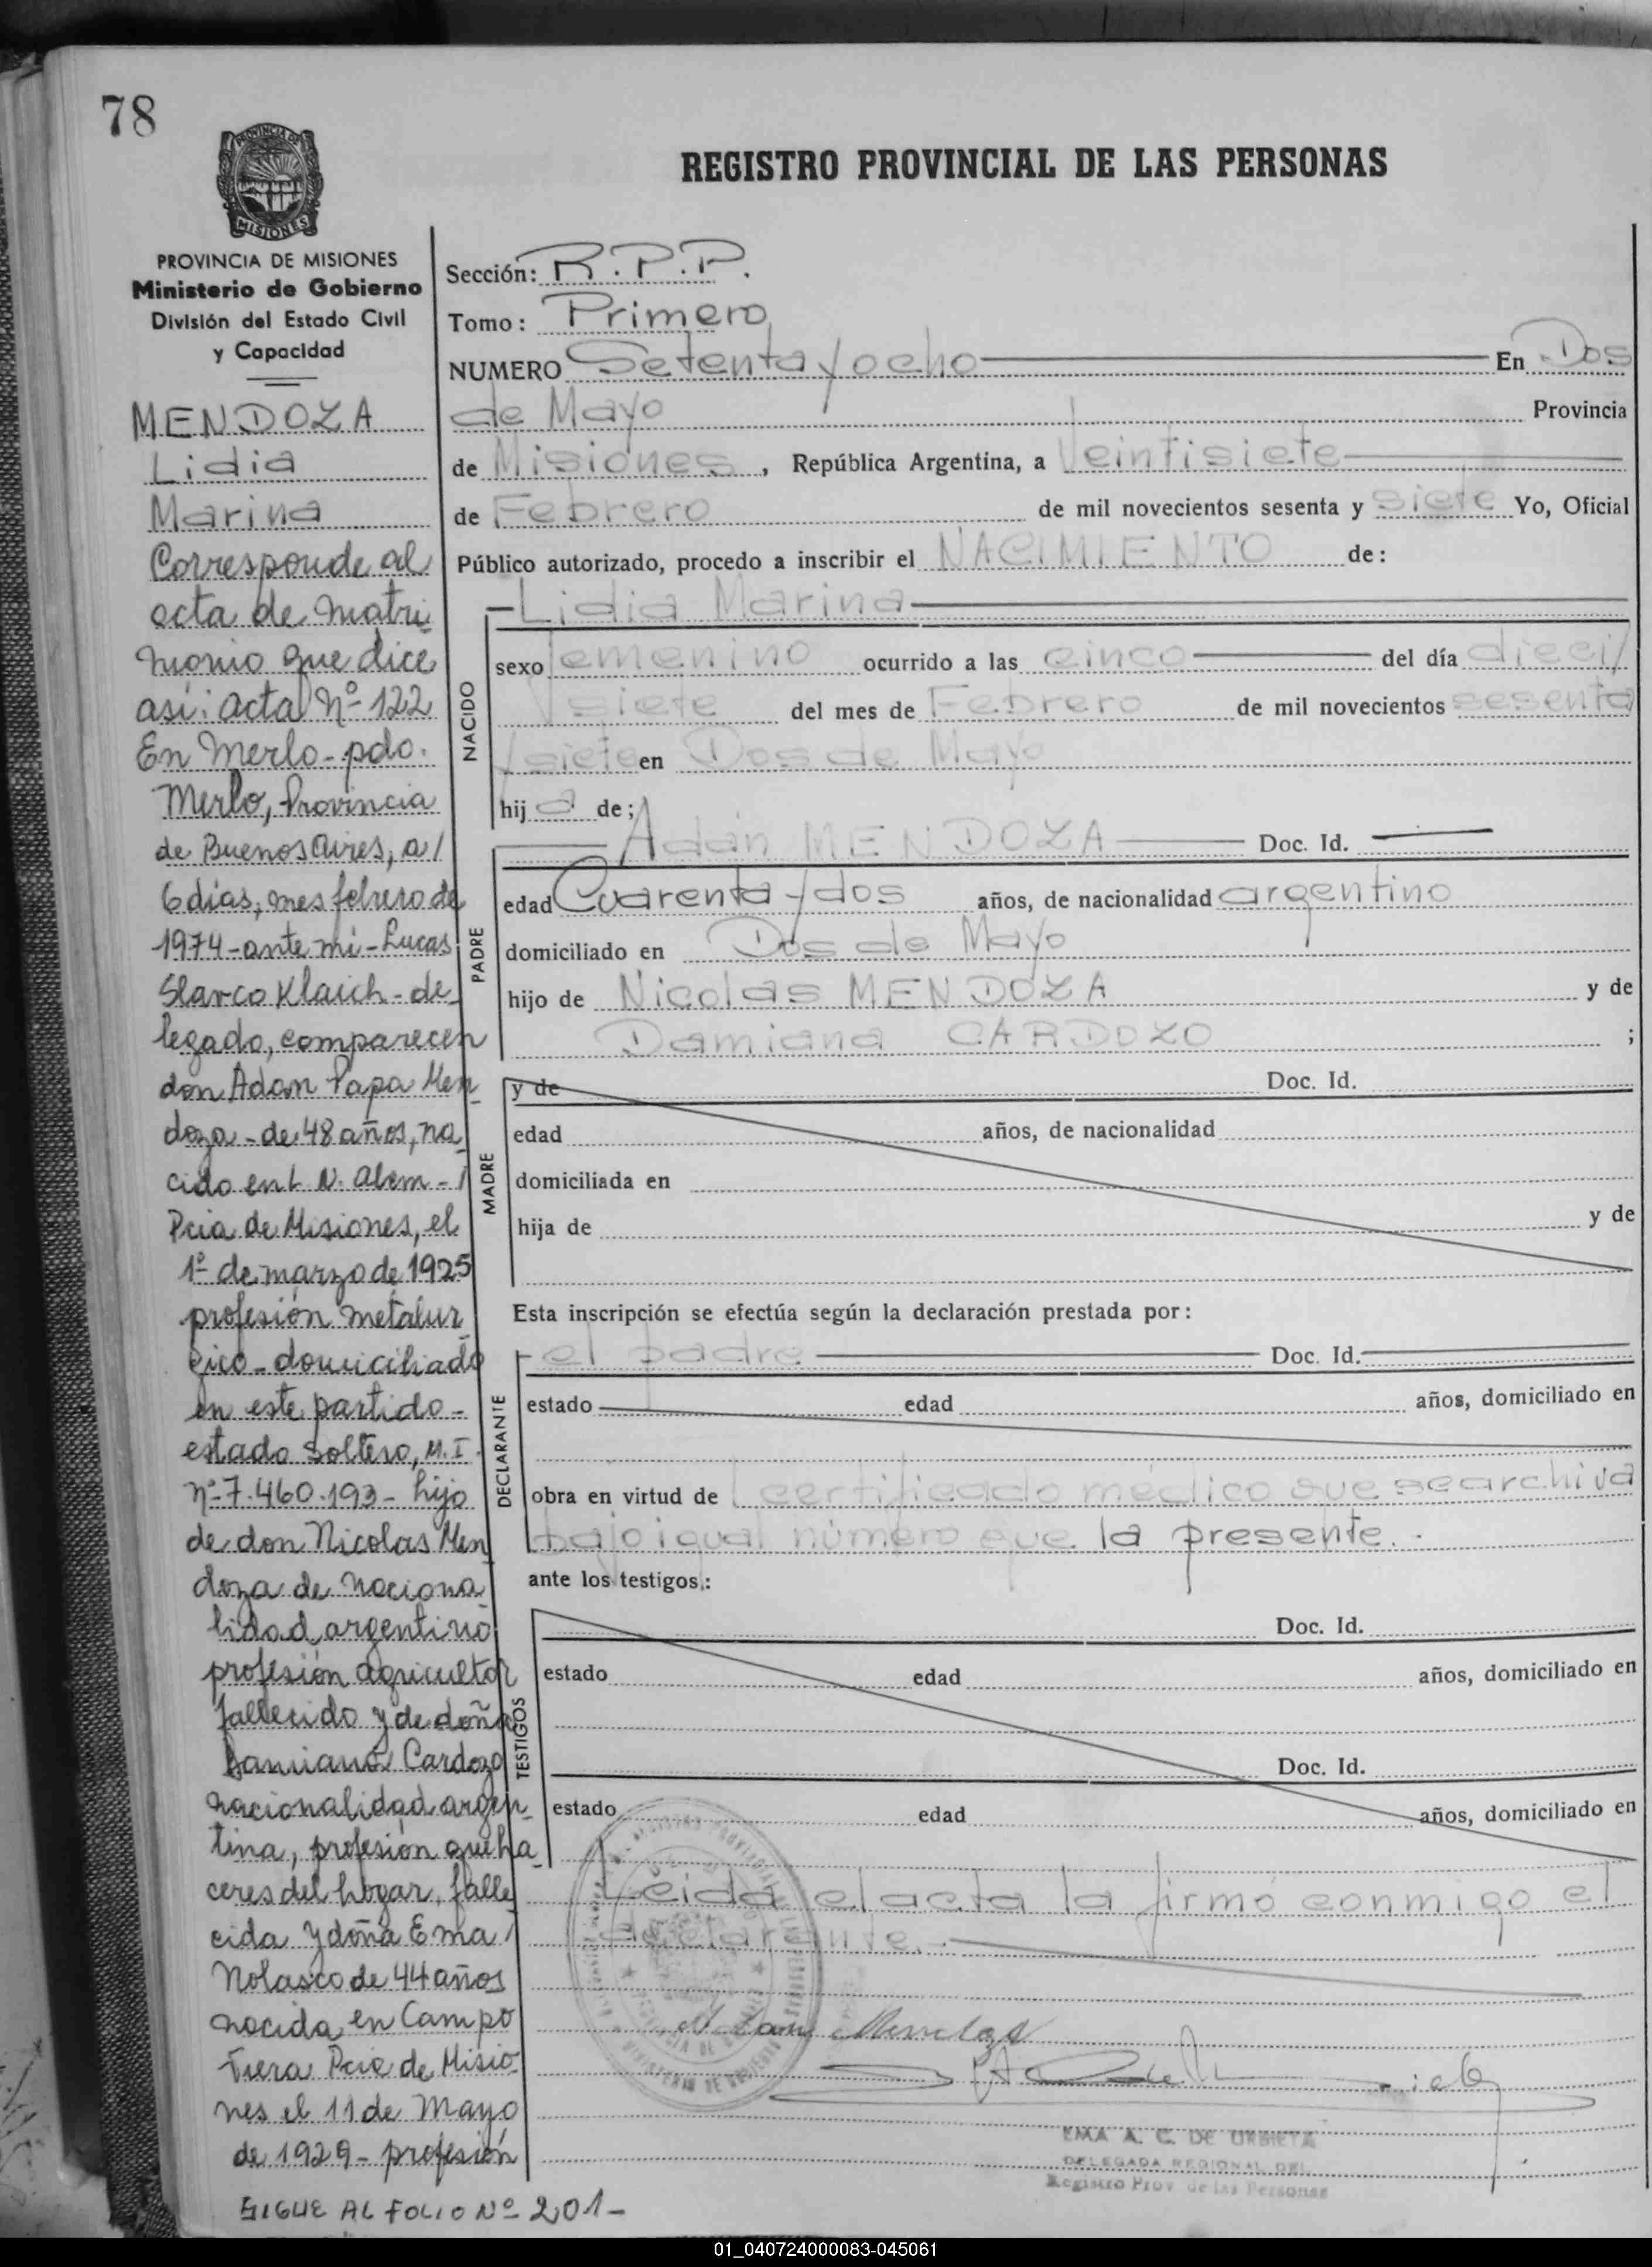 78
PROVINCIA DE
MISIONES
REGISTRO PROVINCIAL DE LAS PERSONAS
PROVINCIA DE MISIONES
Ministerio de Gobierno
División del Estado Civil
y Capacidad
MENDOZA
Lidia
Marina
Corresponde al
acta de matri
monio que dice
asi: acta Nº 122
En Merlo - pdo.
Merlo, Provincia
de Buenos Aires, a /
6 dias, mes febrero de
1974 - ante mi - Lucas
Slarco Klaich - de
legado, comparecen
don Adan Papa Men
doza - de 48 años, na
cido en L. N. Alem - /
Pcia de Misiones, el
1º de marzo de 1925
profesión metalur
gico - domiciliado
en este partido -
estado soltero, M. I.
Nº 7.460.193 - hijo
de don Nicolas Men
doza de naciona
lidad argentino
profesión agricultor
fallecido y de doña
Damiana Cardozo
nacionalidad argen
tina, profesión queha
ceres del hogar, falle
cida y doña Ema /
Nolasco de 44 años
nacida en Campo
Viera Pcia de Misio
nes el 11 de Mayo
de 1929 - profesión
SIGUE AL FOLIO Nº 201-
Sección: R.P.P.
Tomo: Primero
NUMERO Setenta y ocho En Dos
de Mayo Provincia
de Misiones, República Argentina, a Veintisiete
de Febrero de mil novecientos sesenta y siete Yo, Oficial
Público autorizado, procedo a inscribir el NACIMIENTO de:
NACIDO
Lidia Marina
sexo femenino ocurrido a las cinco del día dieci/
siete del mes de Febrero de mil novecientos sesenta
y siete en Dos de Mayo
hij a de;
PADRE
Adán MENDOZA Doc. Id.
edad Cuarenta y dos años, de nacionalidad argentino
domiciliado en Dos de Mayo
hijo de Nicolas MENDOZA y de
Damiana CARDOZO ;
MADRE
y de Doc. Id.
edad años, de nacionalidad
domiciliada en
hija de y de
Esta inscripción se efectúa según la declaración prestada por:
DECLARANTE
el padre Doc. Id.
estado edad años, domiciliado en
obra en virtud de certificado médico que se archiva
bajo igual número que la presente.-
ante los testigos:
TESTIGOS
Doc. Id.
estado edad años, domiciliado en
Doc. Id.
estado edad años, domiciliado en
Leida el acta la firmó conmigo el
declarante.-
Adan Mendoza
EMA A. C. DE URBIETA
DELEGADA REGIONAL DEL
Registro Prov de las Personas
01_040724000083-045061